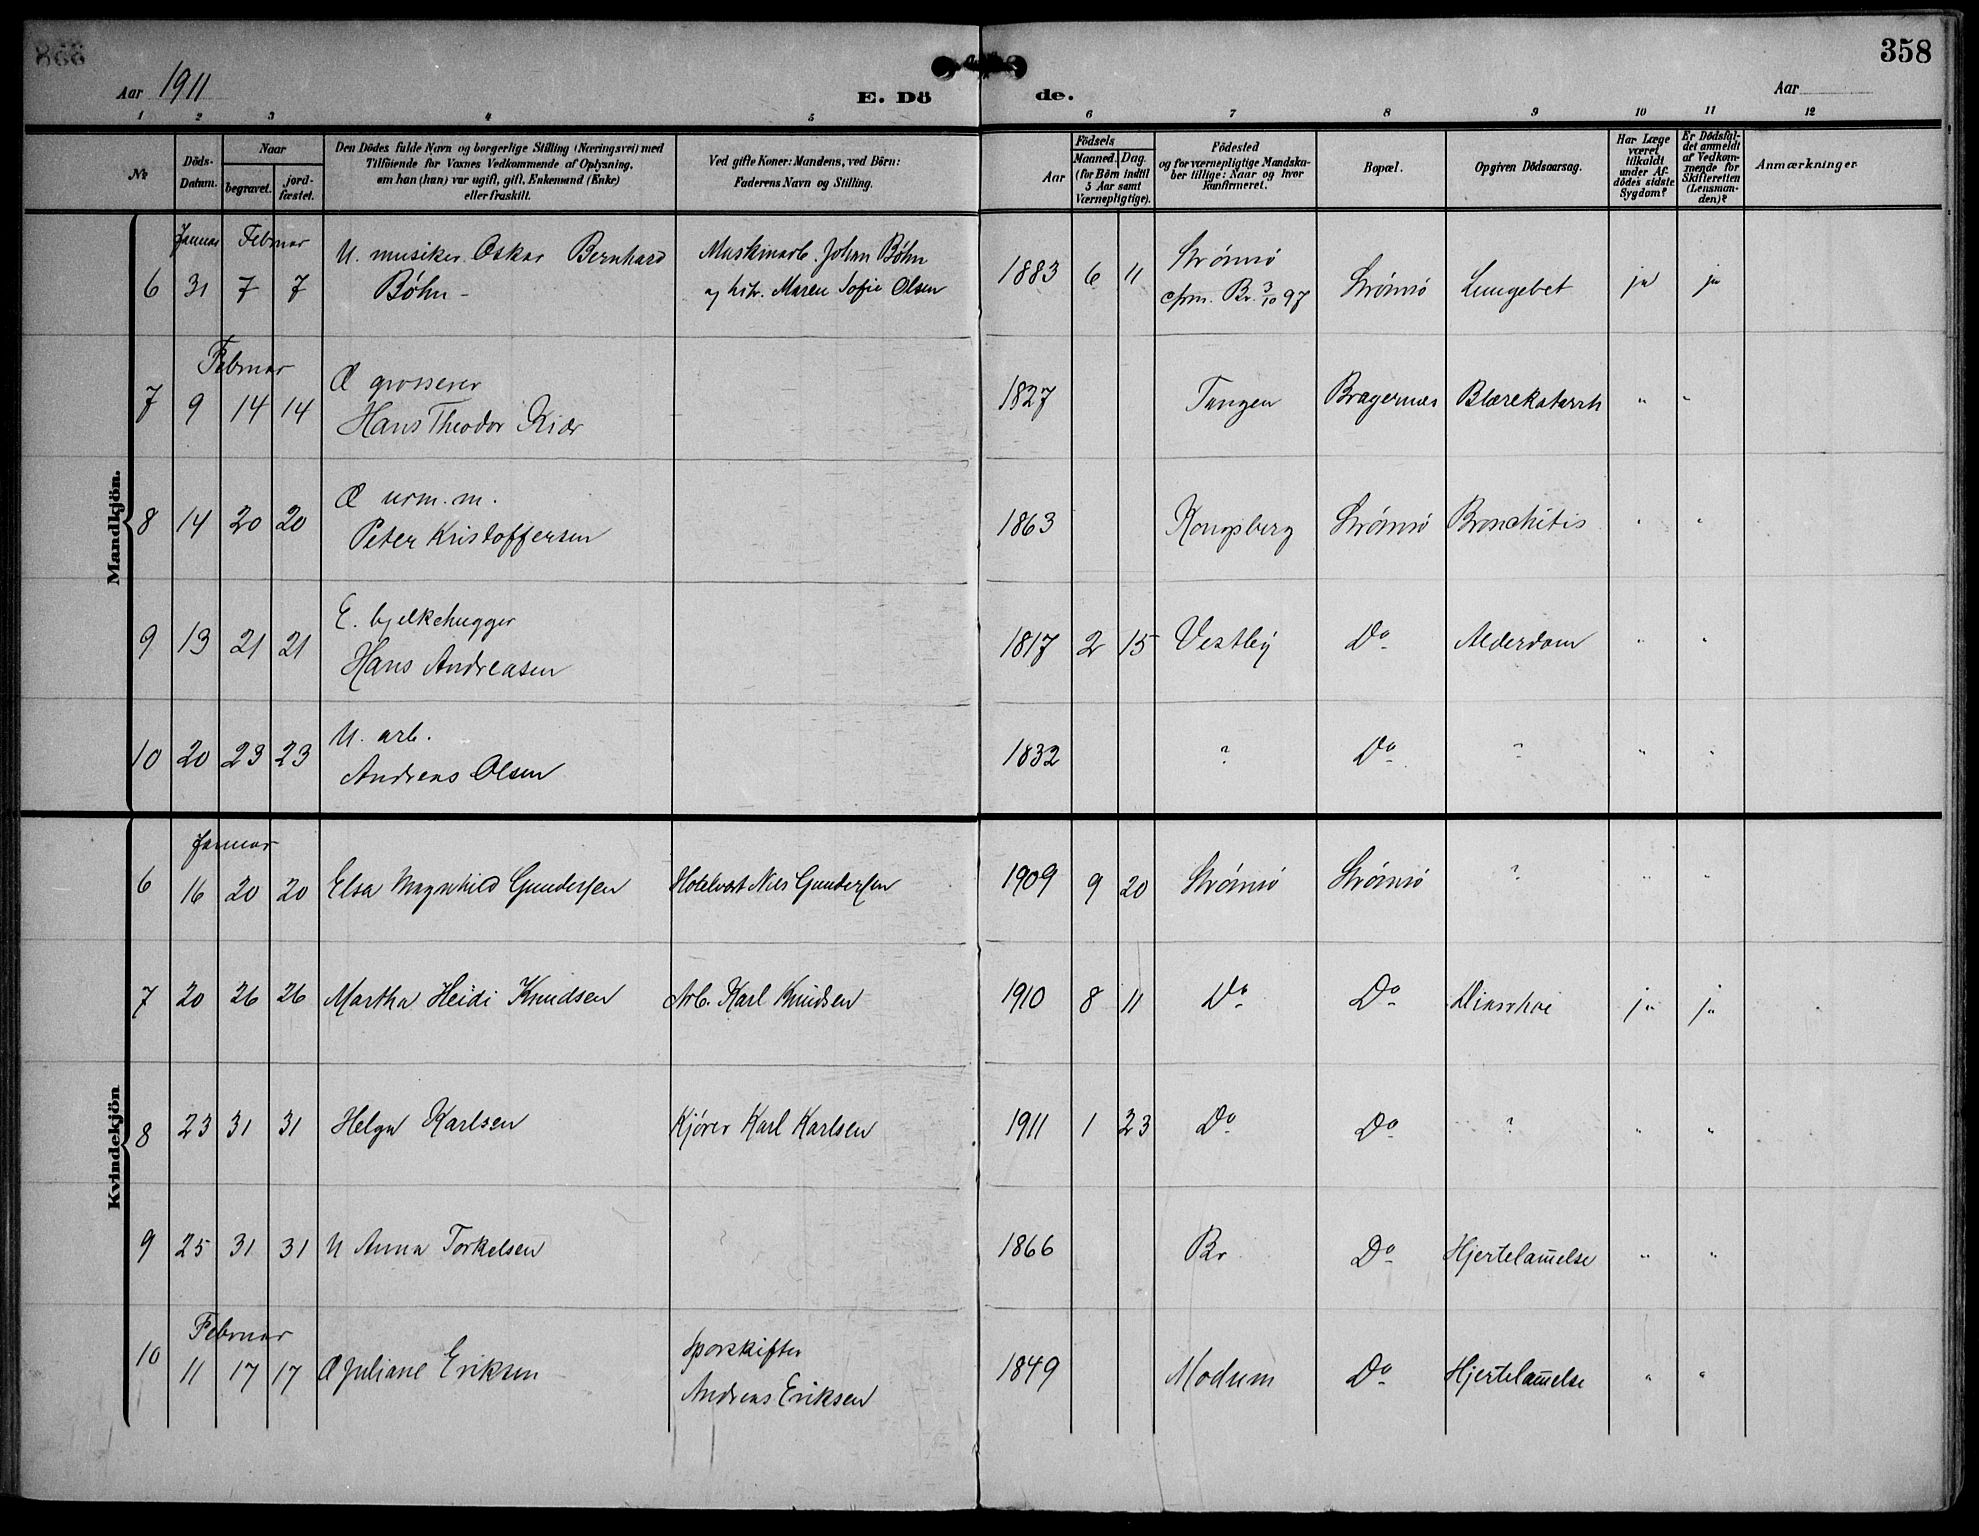 Aar 1911
E. Dö de.
Aar
358
1 2 3 4 5 6 7 8 9 10 11 12
№
Döds-Datum.
Naar
begravet.
jord-fæstet.
Den Dödes fulde Navn og borgerlige Stilling (Næringsvei) med
Tilföiende for Voxnes Vedkommende af Oplysning,
om han (hun) var ugift, gift, Enkemand (Enke)
eller fraskilt.
Ved gifte Koner: Mandens, ved Börn:
Faderens Navn og Stilling.
Födsels
Aar
Maaned. Dag.
(for Börn indtil
5 Aar samt
Værnepligtige).
Födested
og for værnepligtige Mandska-
ber tillige: Naar og hvor
konfirmeret.
Bopæl.
Opgiven Dödsaarsag.
Har Læge
været
tilkaldt
under Af-
dödes sidste
Sygdom?
Er Dödsfal-
det anmeldt
af Vedkom-
mende for
Skifteretten
(Lensman-
den)?
Anmærkninger.
Mandkjön.
Januar Februar
6 31 7 7 U. musiker Oskar Bernhard Bøhn - Maskinarb. Johan Bøhn og h. Maren Sofie Olsen 1883 6 11 Strømsø Br. 3/10 97 Strømsø Lungebet ja ja
Februar
7 9 14 14 Æ grosserer Hans Theodor Kiær 1827 Tangen Bragernæs Blærekatarrh " "
8 14 20 20 Æ urm.m. Peter Kristoffersen 1863 Kongsberg Strømsø Bronchitis " "
9 13 21 21 E. bjelkehugger Hans Andreasen 1817 2 15 Vestby Do Alderdom " "
10 20 23 23 U. arb. Andreas Olsen 1832 ? Do ? " "
Kvindekjön
Januar
6 16 20 20 Elsa Magnhild Gundersen Hotelvært Nils Gundersen 1909 9 20 Strømsø Strømsø ? " "
7 20 26 26 Martha Heidi Knudsen Arb. Karl Knudsen 1910 8 11 Do Do Diarrhoe ja ja
8 23 31 31 Helga Karlsen Kjører Karl Karlsen 1911 1 23 Do Do ? " "
9 25 31 31 U Anna Torkelsen 1866 Br Do Hjertelam̄else " "
Februar
10 11 17 17 Æ Juliane Eriksen Sporskifter Andreas Eriksen 1849 Modum Do Hjertelam̄else " "